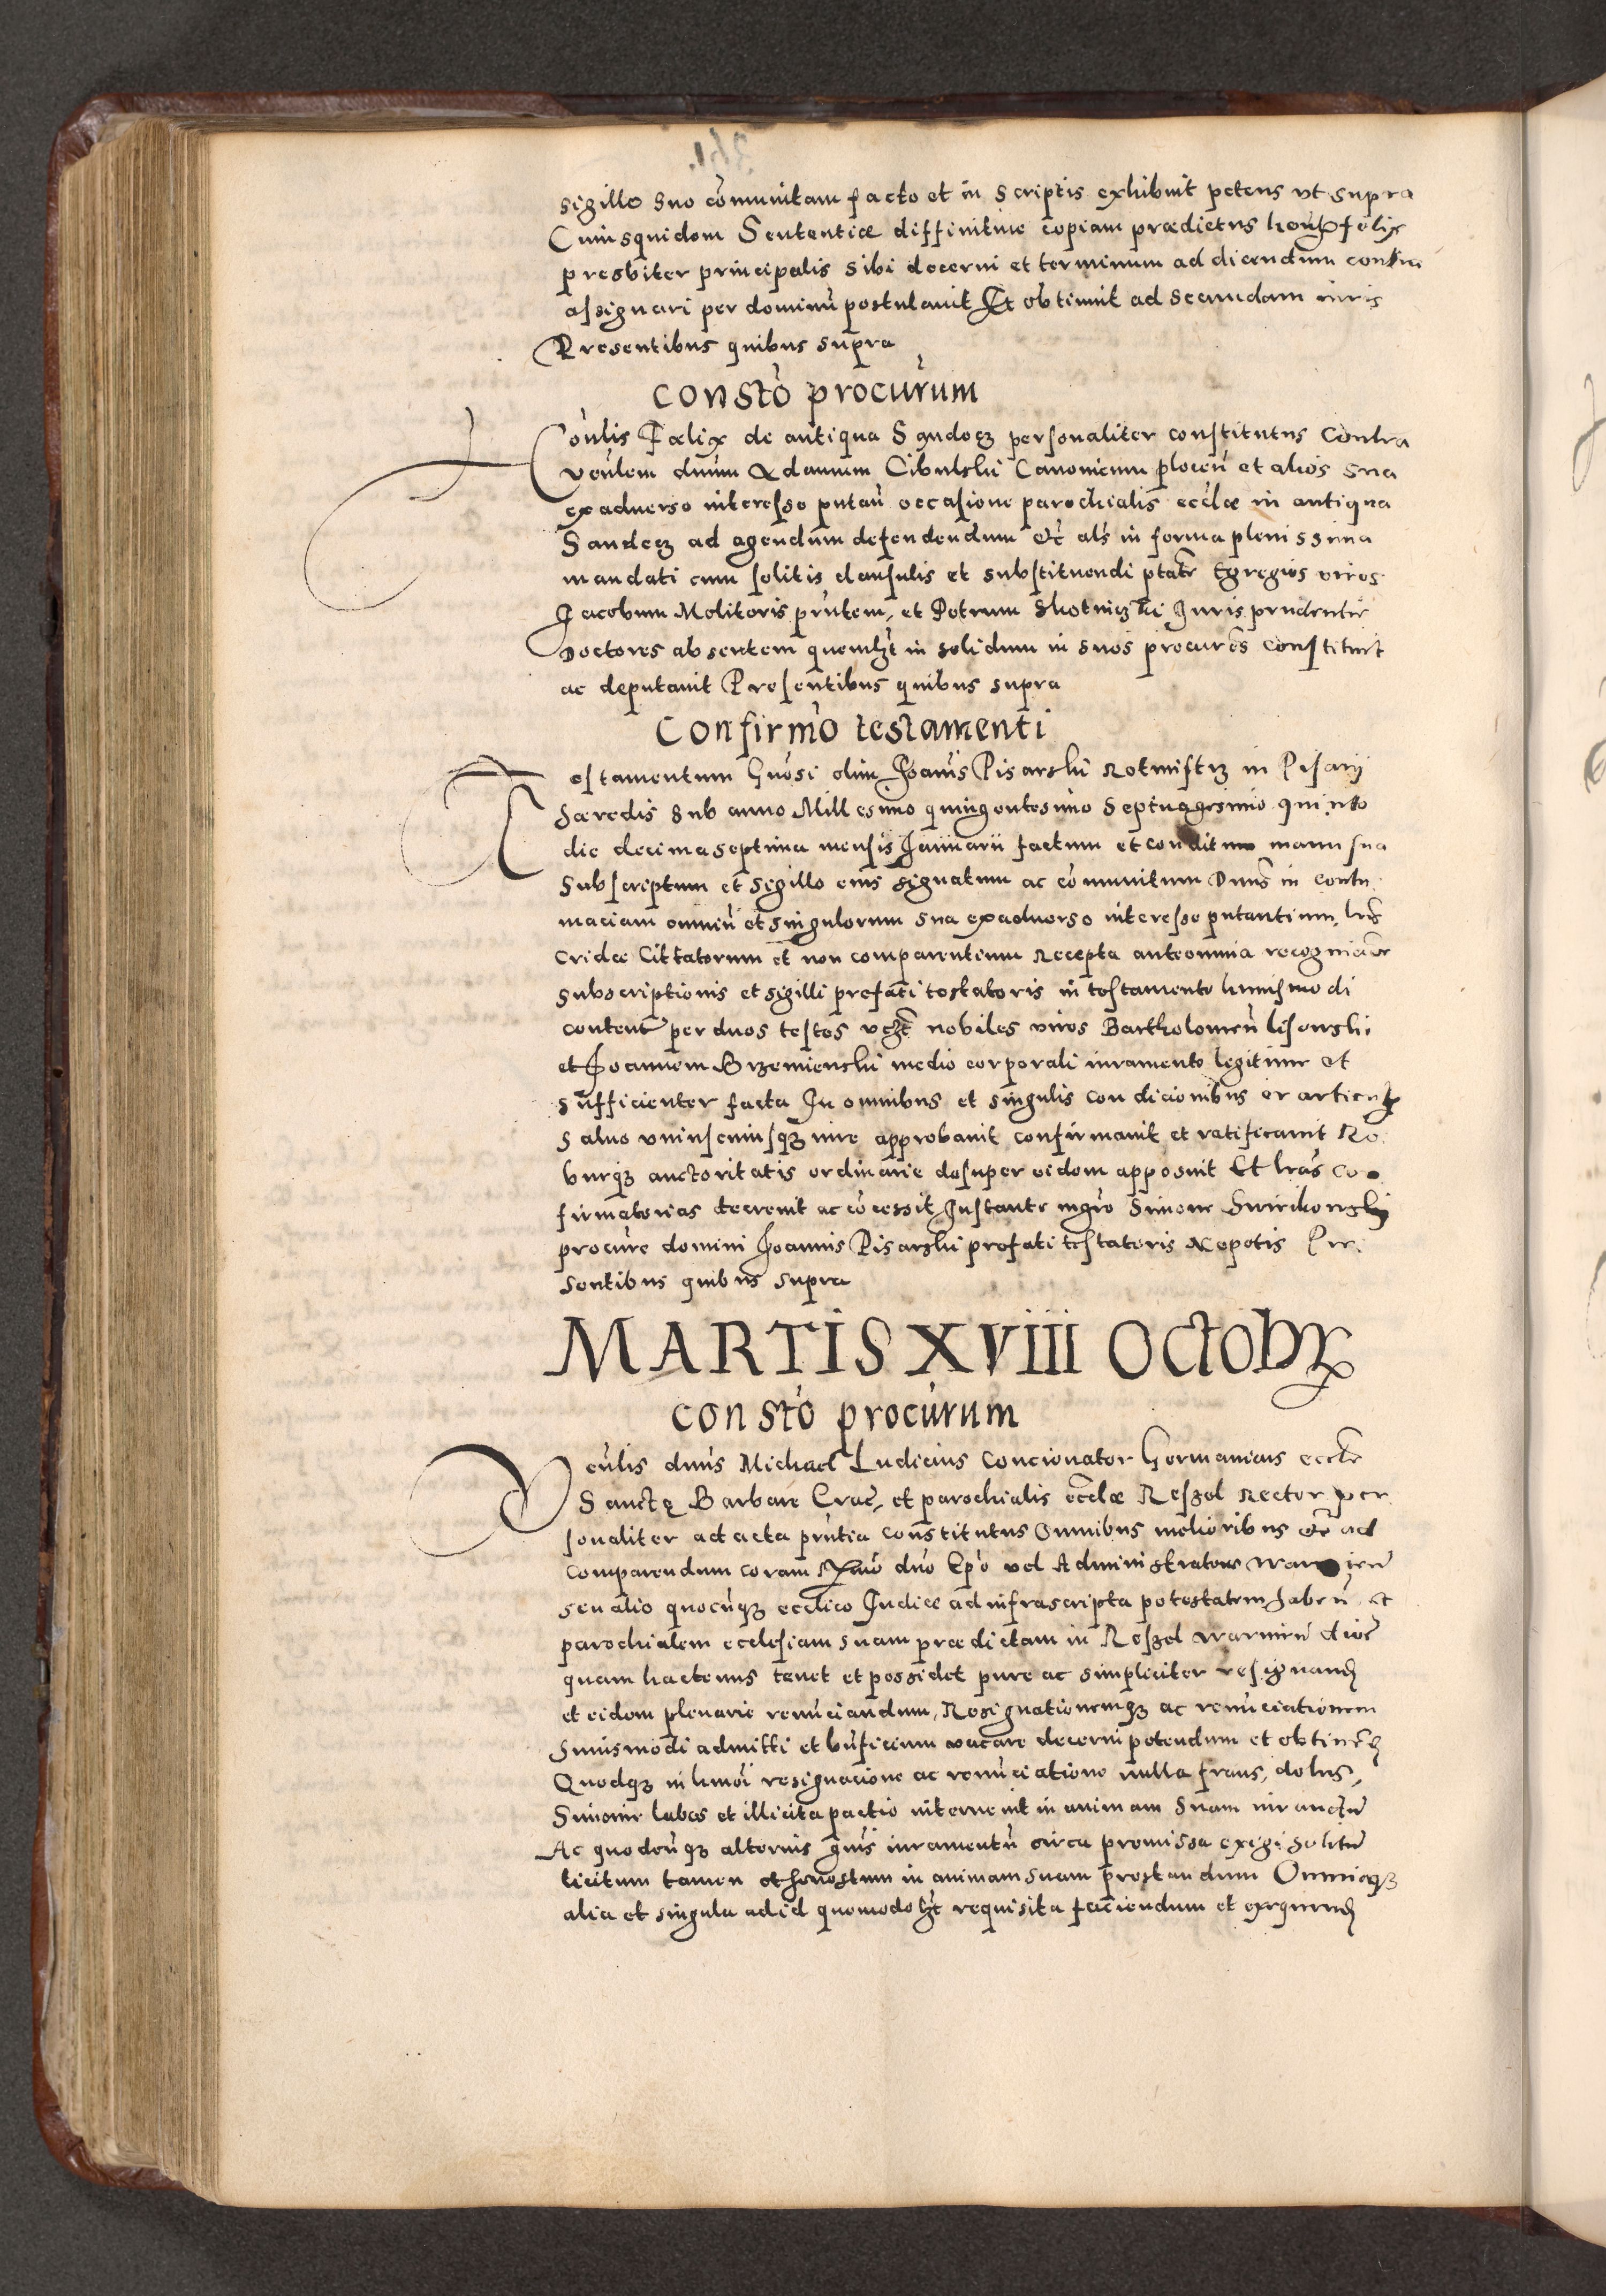 sigillo suo cōmunitam facto et in Scriptis exhibuit petens vt supra
Cuiusquidem Sententiæ diffinitiue copiam prædictus felix
presbiter principalis sibi decerni et terminum ad dicendum contra
assignari per dominū postulauit Et obtinuit ad secundam iuris
Presentibus quibus supra
constō procurum
onlis Fælix de antiqua Sandecz personaliter constitutus Contra
venlem dnum Adamum Cibulski Canonicum plocen̄ et alios sua
exaduerso interesse putan̄ occasione parochialis eccl̄æ in antiqua
Sandecz ad agendum defendendum etc̄ als̄ in forma plenissima
mandati cum solitis clausulis et substituendi ptāte Egregios viros
Jacobum Molitoris prn̄tem, et Petrum Skotniczki Juris prudentiæ
Doctores absentem quemlꝫt in solidum in suos procures̄ constituit
ac deputauit Presentibus quibus supra
Confirmō testamenti
Testamentum Gnōsi olim Joan̄is Pisarski Rotmistrz in Pisary
Hæredis sub anno Millesimo quingentesimo Septuagesimo quinto
die decimaseptima mensis Januarii factum et conditum manu sua
Subscriptum et sigillo eius signatum ac cōmunitum Dnus̄ in contu
maciam omniū et singulorum sua exaduerso interesse putantium, lrīs
Cridæ Cittatorum et non comparentium Recepta anteomnia recognicōe
subscriptionis et sigilli prefati testatoris in testamento huiusmodi
content̄ per duos testes vꝫt nobiles viros Bartholomeū lisowski
et Joannem Brzemienski medio corporali iuramento legitime et
sufficienter facta In omnibus et singulis condicionibus et articulꝭ
Saluo vniuscuiusqꝫ iure approbauit confirmauit et ratificauit Ro
burqꝫ auctoritatis ordinarie desuper eidem apposuit Et lrās co
firmatorias decreuit ac cōcessit Instante mgrō Simone
procure domini Joannis Pisarski prefati testatoris Nepotis Pre
sentibus quibus supra
MARTIS XVIII OctobꝜ
constō procurum
Venlis dnus Michael Ludicius Concionator Germanicus eccl̄æ
Sanctę Barbare Crac̄, et parochialis eccl̄æ Reszel Rector per
sonaliter ad acta prn̄tia constitutus Omnibus melioribus etc̄ ad
comparendum coram Rmō dnō Epō vel Administratore
seu alio quocūqꝫ ecclico Judice ad infrascripta potestatem haben̄ et
parochialem ecclesiam suam prædictam in Reszel warmien̄ dioc̄
quam hactenus tenet et possidet pure ac simpliciter resignand
et eidem plenarie renūciandum, Resignationemqꝫ ac renūciationem
Huiusmodi admitti et bn̄ficium vacare decerni petendum et obtinend
Quodqꝫ in hmōi resignacione ac renūciatione nulla fraus, dolus,
Simoniæ labes et illicita pactio interuenit in animam suam iurandū
Ac quodcūqꝫ alterius gn̄is iuramentū circa premissa exigi solitū
licitum tamen et honestum in animam suam prestandum Omniaqꝫ
alia et singula ad id quomodolꝫt requisita faciendum et exequend